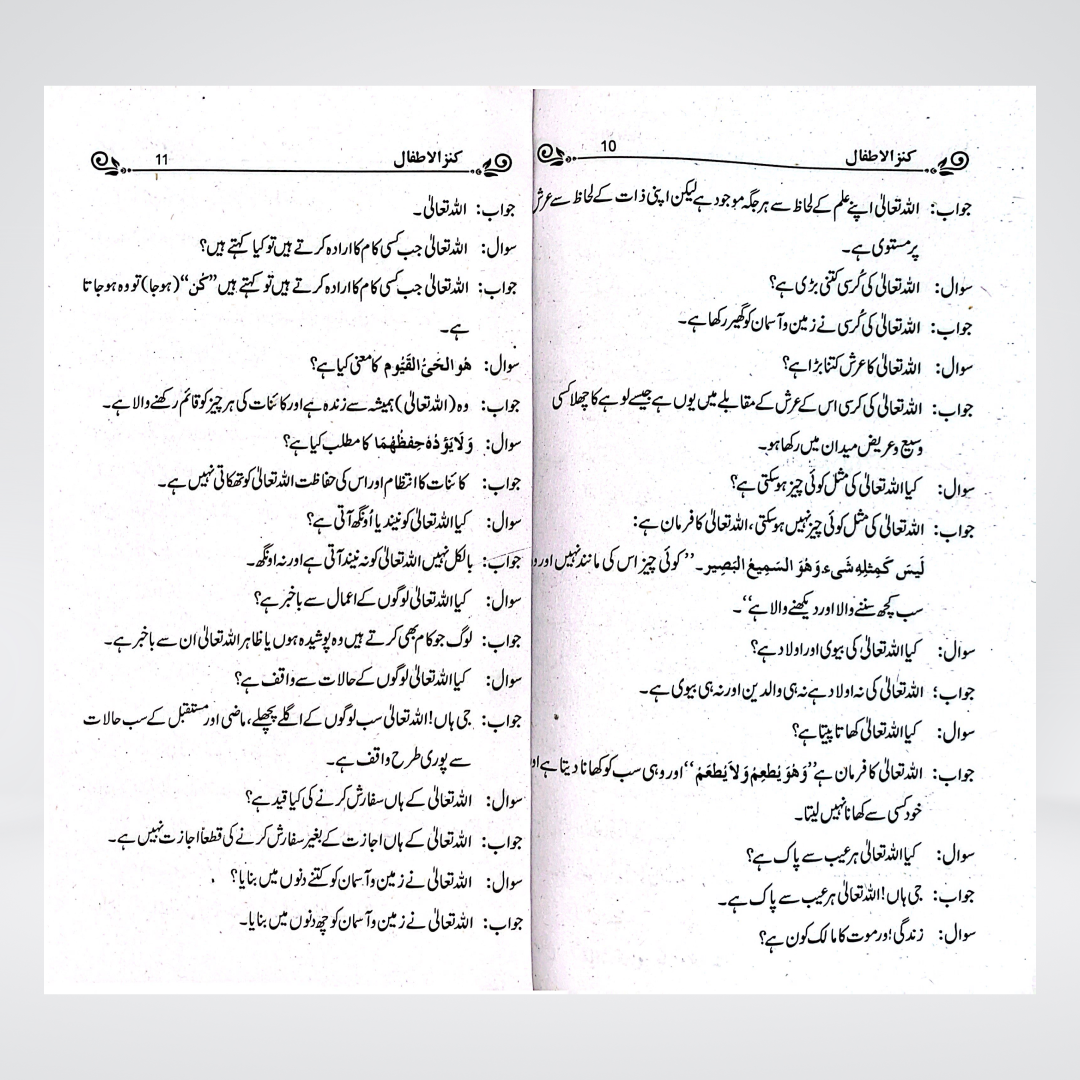 کنز الاطفال 10
جواب: اللہ تعالیٰ اپنے علم کے لحاظ سے ہر جگہ موجود ہے لیکن اپنی ذات کے لحاظ سے عرش
پر مستوی ہے۔
سوال: اللہ تعالیٰ کی کُرسی کتنی بڑی ہے؟
جواب: اللہ تعالیٰ کی کُرسی نے زمین و آسمان کو گھیر رکھا ہے۔
سوال: اللہ تعالیٰ کا عرش کتنا بڑا ہے؟
جواب: اللہ تعالیٰ کی کرسی اس کے عرش کے مقابلے میں یوں ہے جیسے لوہے کا چھلا کسی
وسیع و عریض میدان میں رکھا ہو۔
سوال: کیا اللہ تعالیٰ کی مثل کوئی چیز ہوسکتی ہے؟
جواب: اللہ تعالیٰ کی مثل کوئی چیز نہیں ہوسکتی، اللہ تعالیٰ کا فرمان ہے:
لَیسَ کَمِثلِہٖ شَیء وَھُوَ السَمِیعُ البَصِیر۔ ’’کوئی چیز اس کی مانند نہیں اور و
سب کچھ سننے والا اور دیکھنے والا ہے‘‘۔
سوال: کیا اللہ تعالیٰ کی بیوی اور اولاد ہے؟
جواب: اللہ تعالیٰ کی نہ اولاد ہے نہ ہی والدین اور نہ ہی بیوی ہے۔
سوال: کیا اللہ تعالیٰ کھاتا پیتا ہے؟
جواب: اللہ تعالیٰ کا فرمان ہے ’’وَھُوَ یُطعِمُ وَلاَ یُطعَمُ‘‘ اور وہی سب کو کھانا دیتا ہے او
خود کسی سے کھانا نہیں لیتا۔
سوال: کیا اللہ تعالیٰ ہر عیب سے پاک ہے؟
جواب: جی ہاں! اللہ تعالیٰ ہر عیب سے پاک ہے۔
سوال: زندگی اور موت کا مالک کون ہے؟
کنز الاطفال 11
جواب: اللہ تعالیٰ۔
سوال: اللہ تعالیٰ جب کسی کام کا ارادہ کرتے ہیں تو کیا کہتے ہیں؟
جواب: اللہ تعالیٰ جب کسی کام کا ارادہ کرتے ہیں تو کہتے ہیں ’’کُن‘‘ (ہوجا) تو وہ ہوجاتا
ہے۔
سوال: ھُو الحَیُّ القَیُّوم کا معنی کیا ہے؟
جواب: وہ (اللہ تعالیٰ) ہمیشہ سے زندہ ہے اور کائنات کی ہر چیز کو قائم رکھنے والا ہے۔
سوال: وَلَا یَؤدُہٗ حِفظُھُمَا کا مطلب کیا ہے؟
جواب: کائنات کا انتظام اور اس کی حفاظت اللہ تعالیٰ کو تھکاتی نہیں ہے۔
سوال: کیا اللہ تعالیٰ کو نیند یا اُونگھ آتی ہے؟
جواب: بالکل نہیں اللہ تعالیٰ کو نہ نیند آتی ہے اور نہ اونگھ۔
سوال: کیا اللہ تعالیٰ لوگوں کے اعمال سے باخبر ہے؟
جواب: لوگ جو کام بھی کرتے ہیں وہ پوشیدہ ہوں یا ظاہر اللہ تعالیٰ ان سے باخبر ہے۔
سوال: کیا اللہ تعالیٰ لوگوں کے حالات سے واقف ہے؟
جواب: جی ہاں! اللہ تعالیٰ سب لوگوں کے اگلے پچھلے، ماضی اور مستقبل کے سب حالات
سے پوری طرح واقف ہے۔
سوال: اللہ تعالیٰ کے ہاں سفارش کرنے کی کیا قید ہے؟
جواب: اللہ تعالیٰ کے ہاں اجازت کے بغیر سفارش کرنے کی قطعاً اجازت نہیں ہے۔
سوال: اللہ تعالیٰ نے زمین و آسمان کو کتنے دنوں میں بنایا؟
جواب: اللہ تعالیٰ نے زمین و آسمان کو چھ دنوں میں بنایا۔